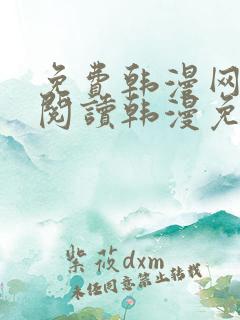 免費韩漫网
閱讀韩漫免
紫筱dxm
未经同意禁止转载